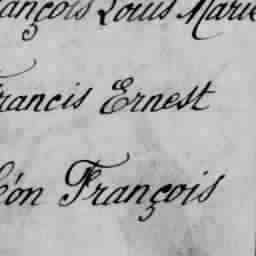 ançois Louis Marie
rancis Ernest
éon François